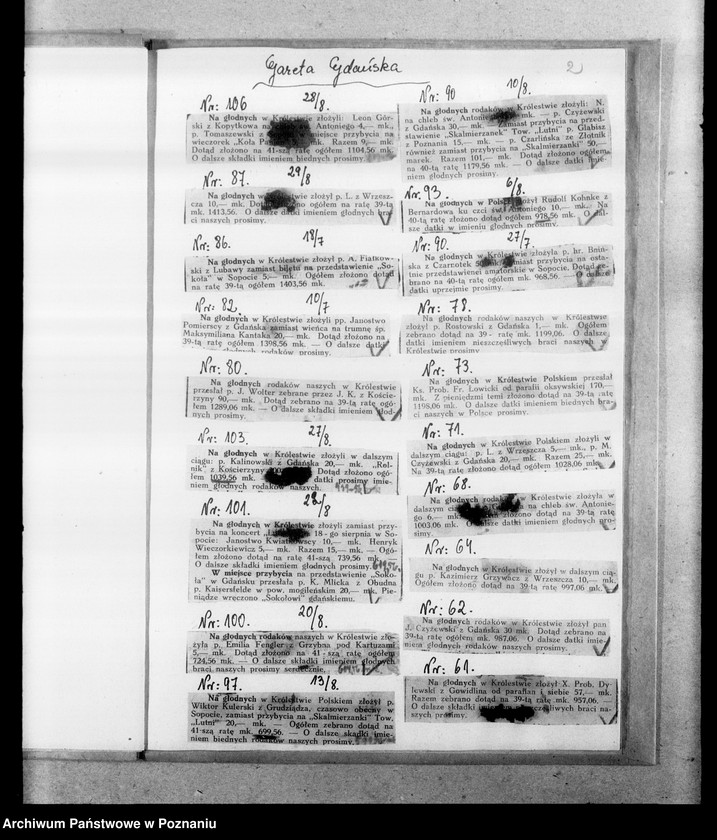 Gazeta Gdańska
2
Nr: 106 28/8.
Na głodnych w Królestwie złożyli: Leon Gór-
ski z Kopytkowa na św. Antoniego 4,— mk.,
p. Tomaszewski z w miejsce przybycia na
wieczorek „Koła mk. Razem 9,— mk.
Dotąd złożono na 41-szą ratę ogółem 1104.56 mk.
O dalsze składki imieniem biednych prosimy.
Nr: 87. 29/8
Na głodnych w Królestwie złożył p. L. z Wrzesz-
cza 10,— mk. Dotąd ogółem na ratę 39-tą
mk. 1413.56. O dalsze datki imieniem głodnych bra-
ci naszych prosimy.
Nr: 86. 18/7
Na głodnych w Królestwie złożył p. A. Fiatkow-
ski z Lubawy zamiast biletu na przedstawienie „So-
koła" w Sopocie 5,— mk. Ogółem złożono dotąd
na ratę 39-tą 1403,56 mk.
Nr: 82 10/7
Na głodnych w Królestwie złożyli pp. Janostwo
Pomierscy z Gdańska zamiast wieńca na trumnę śp.
Maksymiliana Kantaka 20,— mk. Dotąd złożono na
39-tą ratę ogółem 1398.56 mk. — O dalsze datki
głodnych rodaków prosimy.
Nr: 80.
Na głodnych rodaków naszych w Królestwie
przesłał p. J. Wolter zebrane przez J. K. z Koście-
rzyny 90,— mk. Dotąd zebrano na 39-tą ratę ogó-
łem 1289,06 mk. — O dalsze składki imieniem głod-
nych prosimy.
Nr: 103. 27/8
Na głodnych w Królestwie złożyli w dalszym
ciągu: p. Kalinowski z Gdańska 20,— mk. „Rol-
nik" z Kościerzyny Dotąd złożono ogó-
łem 1039,56 mk. datki prosimy imie-
niem głodnych rodaków naszych.
Nr: 101. 22/8
Na głodnych w Królestwie złożyli zamiast przy-
bycia na koncert 18-go sierpnia w So-
pocie: Janostwo Kwiatkowscy 10,— mk. Henryk
Wieczorkiewicz 5,— mk. Razem 15,— mk. — Ogó-
łem złożono dotąd na ratę 41-szą 739,56 mk. —
O dalsze składki imieniem głodnych prosimy.
W miejsce przybycia na przedstawienie „Soko-
ła" w Gdańsku przesłała p. K. Mlicka z Obudna
p. Kaisersfelde w pow. mogileńskim 20,— mk. Pie-
niądze wręczono „Sokołowi" gdańskiemu.
Nr: 100. 20/8
Na głodnych rodaków naszych w Królestwie zło-
żyła p. Emilia Fengler z Grzybna pod Kartuzami
5,— mk. Dotąd złożono na 41-szą ratę ogółem
724,56 mk. — O dalsze składki imieniem głodnych
braci naszych serdecznie prosimy.
Nr: 97. 13/8.
Na głodnych w Królestwie Polskiem złożył p.
Wiktor Kulerski z Grudziądza, czasowo obecny w
Sopocie, zamiast przybycia na „Skalmierzanki" Tow.
„Lutni" 20,— mk. — Ogółem zebrano dotąd na
41-szą ratę mk. 699,56. — O dalsze składki imie-
niem biednych rodaków naszych prosimy.
Nr: 90 10/8.
Na głodnych rodaków w Królestwie złożyli: N.
na chleb św. Antoniego mk. — p. Czyżewski
z Gdańska 30,— mk. — Zamiast przybycia na przed-
stawienie „Skalmierzanek" Tow. „Lutni" p. Głabisz
z Poznania 15,— mk. — p. Czarlińska ze Złotnik
również zamiast przybycia na „Skalmierzanki" 50,—
marek. Razem 101,— mk. Dotąd złożono ogółem
na 40-tą ratę 1179,56 mk. — O dalsze datki imie-
niem głodnych prosimy.
Nr. 93. 6/8.
Na głodnych w Polsce złożył Rudolf Kohnke z
Bernardowa ku czci św. Antoniego 10,— mk. Na
40-tą ratę złożono dotąd ogółem 978,56 mk. O dal-
sze datki w imieniu głodnych prosimy.
Nr. 90. 27/7.
Na głodnych w Królestwie złożyła p. hr. Bnin-
ska z Czarnotek zamiast przybycia na osta-
tnie przedstawieni amatorskie w Sopocie. Dotąd ze-
brano na 40-tą ratę ogółem mk. 968,56. — O dalsze
datki uprzejmie prosimy.
Nr. 78.
Na głodnych rodaków naszych w Królestwie
złożył p. Rostowski z Gdańska 1,— mk. Ogółem
zebrano dotąd na 39- ratę mk. 1199,06. O dalsze
datki imieniem nieszczęśliwych braci naszych w
Królestwie prosimy.
Nr. 73.
Na głodnych w Królestwie Polskiem przesłał
Ks. Prob. Fr. Łowicki od parafii okaywskiej 170,—
mk. Z pieniędzmi temi złożono dotąd na 39-tą ratę
1198,06 mk. O dalsze datki imieniem głodnych bra-
ci naszych w Polsce prosimy.
Nr. 71.
Na głodnych w Królestwie Polskiem złożyli w
dalszym ciągu: p. L. z Wrzeszcza 5,— mk., p. M.
Czyżewski z Gdańska 20,— mk. Razem 25,— mk.
Na 39-tą ratę złożono dotąd ogółem 1028,06 mk.
Nr. 68.
Na głodnych rodaków w Królestwie złożyła w
dalszym na chleb św. Antonie-
go 6,— mk. złożono dotąd na 39-tą ratę
1003.06 mk. O dalsze datki imieniem głodnych pro-
simy.
Nr. 64.
Na głodnych w Królestwie złożył w dalszym cią-
gu p. Kazimierz Grzywacz z Wrzeszcza 10,— mk.
Ogółem złożono dotąd na 39-tą ratę 997,06 mk.
Nr. 62.
Na głodnych rodaków w Królestwie złożył pan
J. Czyżewski z Gdańska 30 mk. Dotąd zebrano na
39-tą ratę ogółem mk. 987,06. O dalsze datki imie-
niem głodnych rodaków naszych prosimy.
Nr. 61.
Na głodnych w Królestwie złożył X. Prob. Dy-
lewski z Gowidlina od parafian i siebie 57,— mk.
Razem zebrano dotąd na 39-tą ratę mk. 957,06.
O dalsze składki imieniem nieszczęśliwych braci na-
szych prosimy.
Archiwum Państwowe w Poznaniu